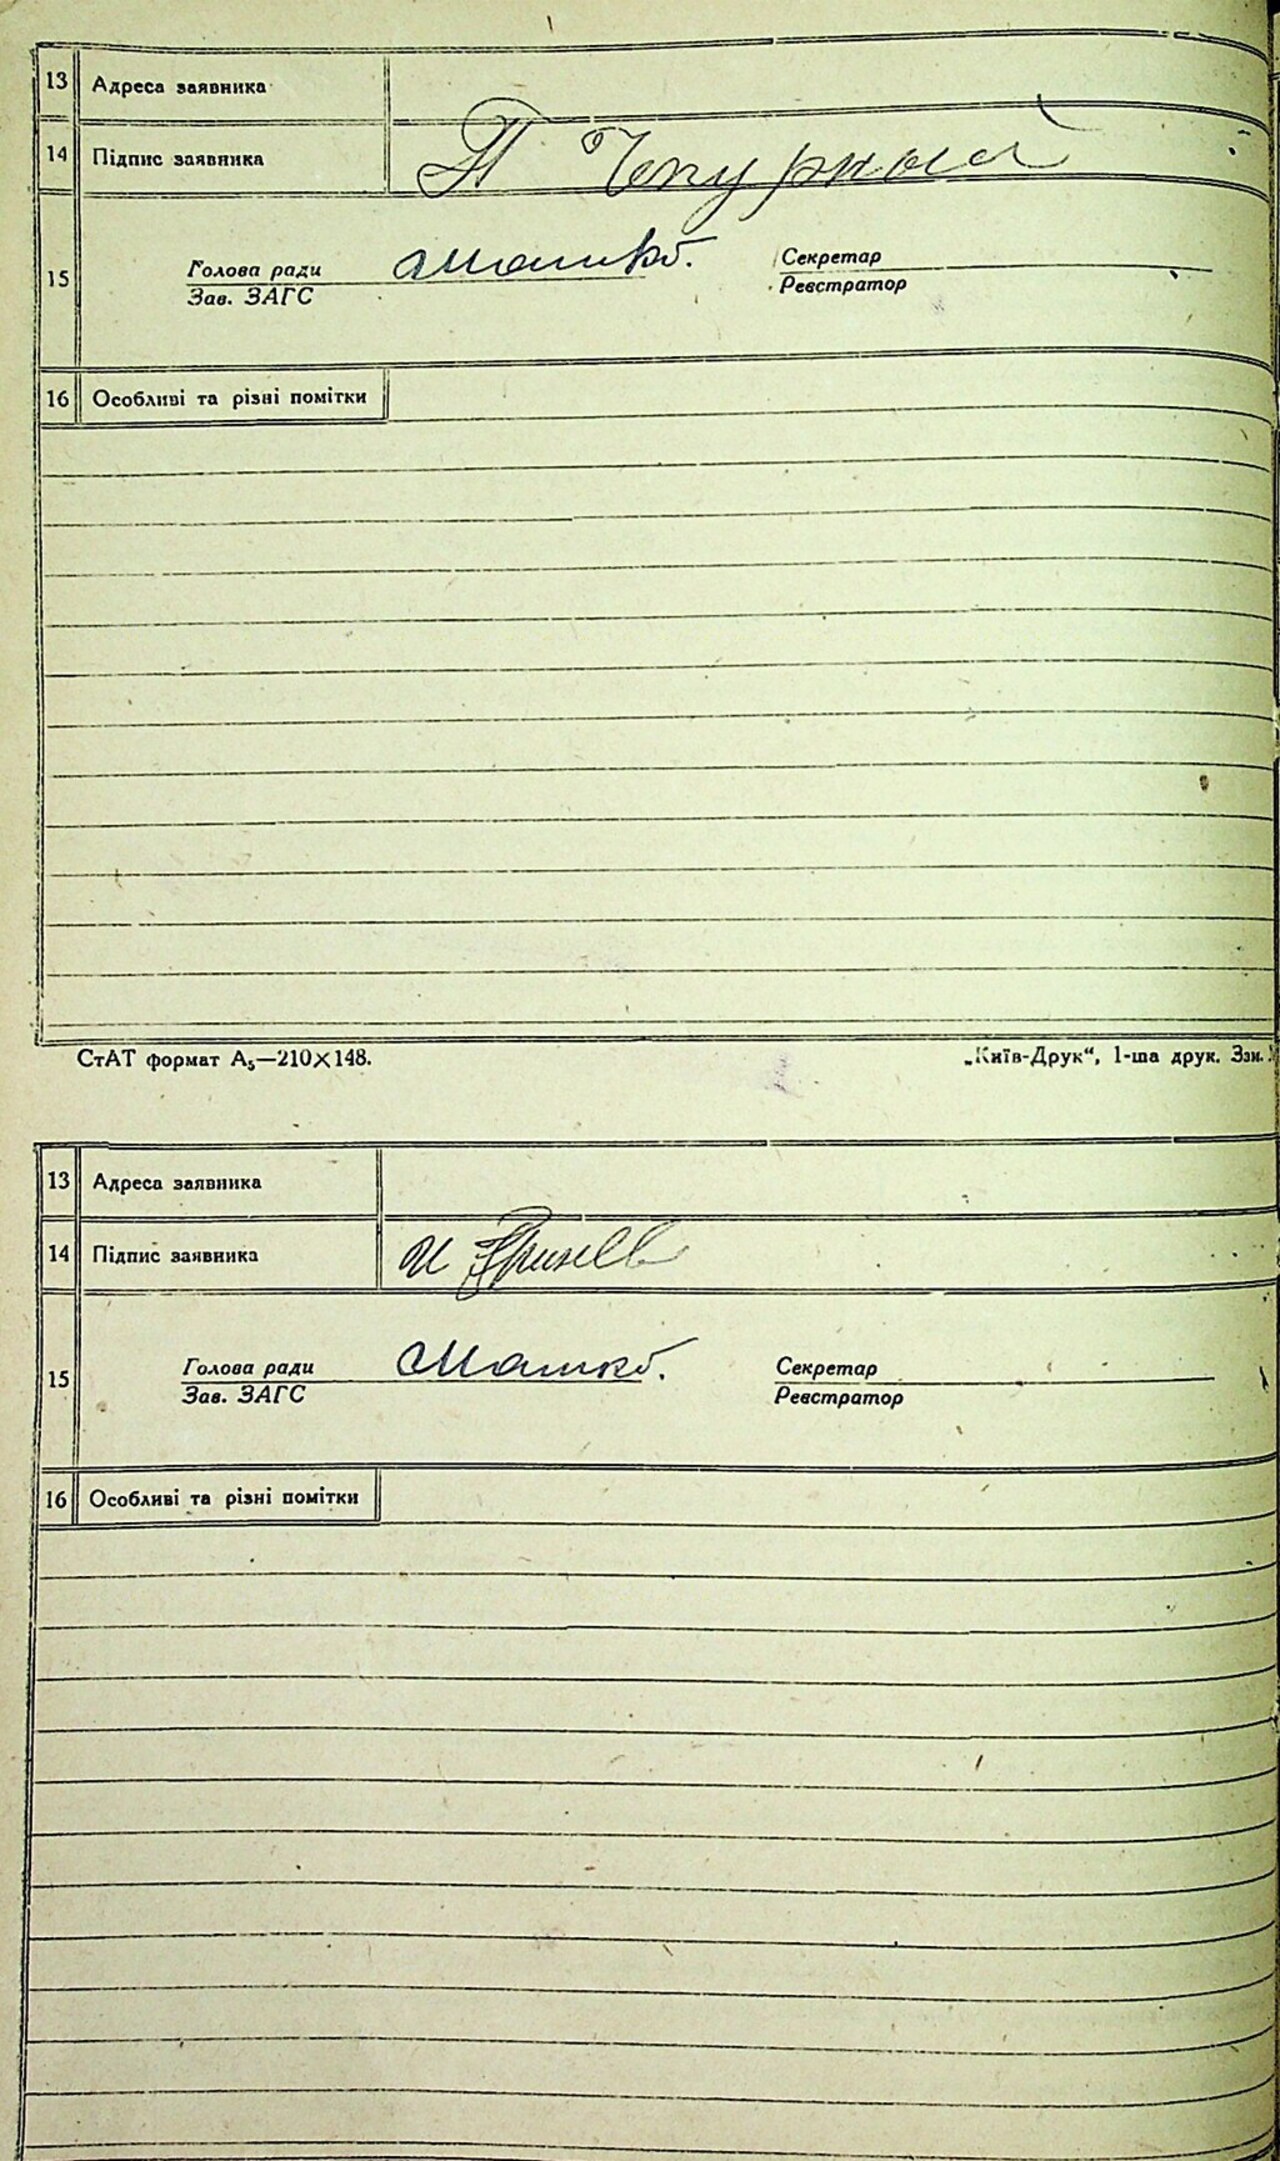 13 Адреса заявника
14 Підпис заявника П Чепурной
15
Голова ради Машко. Секретар
Зав. ЗАГС Реєстратор
16 Особливі та різні помітки
СтАТ формат А5—210×148. „Київ-Друк“, 1-ша друк. Зам.
13 Адреса заявника
14 Підпис заявника
15
Голова ради Машко. Секретар
Зав. ЗАГС Реєстратор
16 Особливі та різні помітки